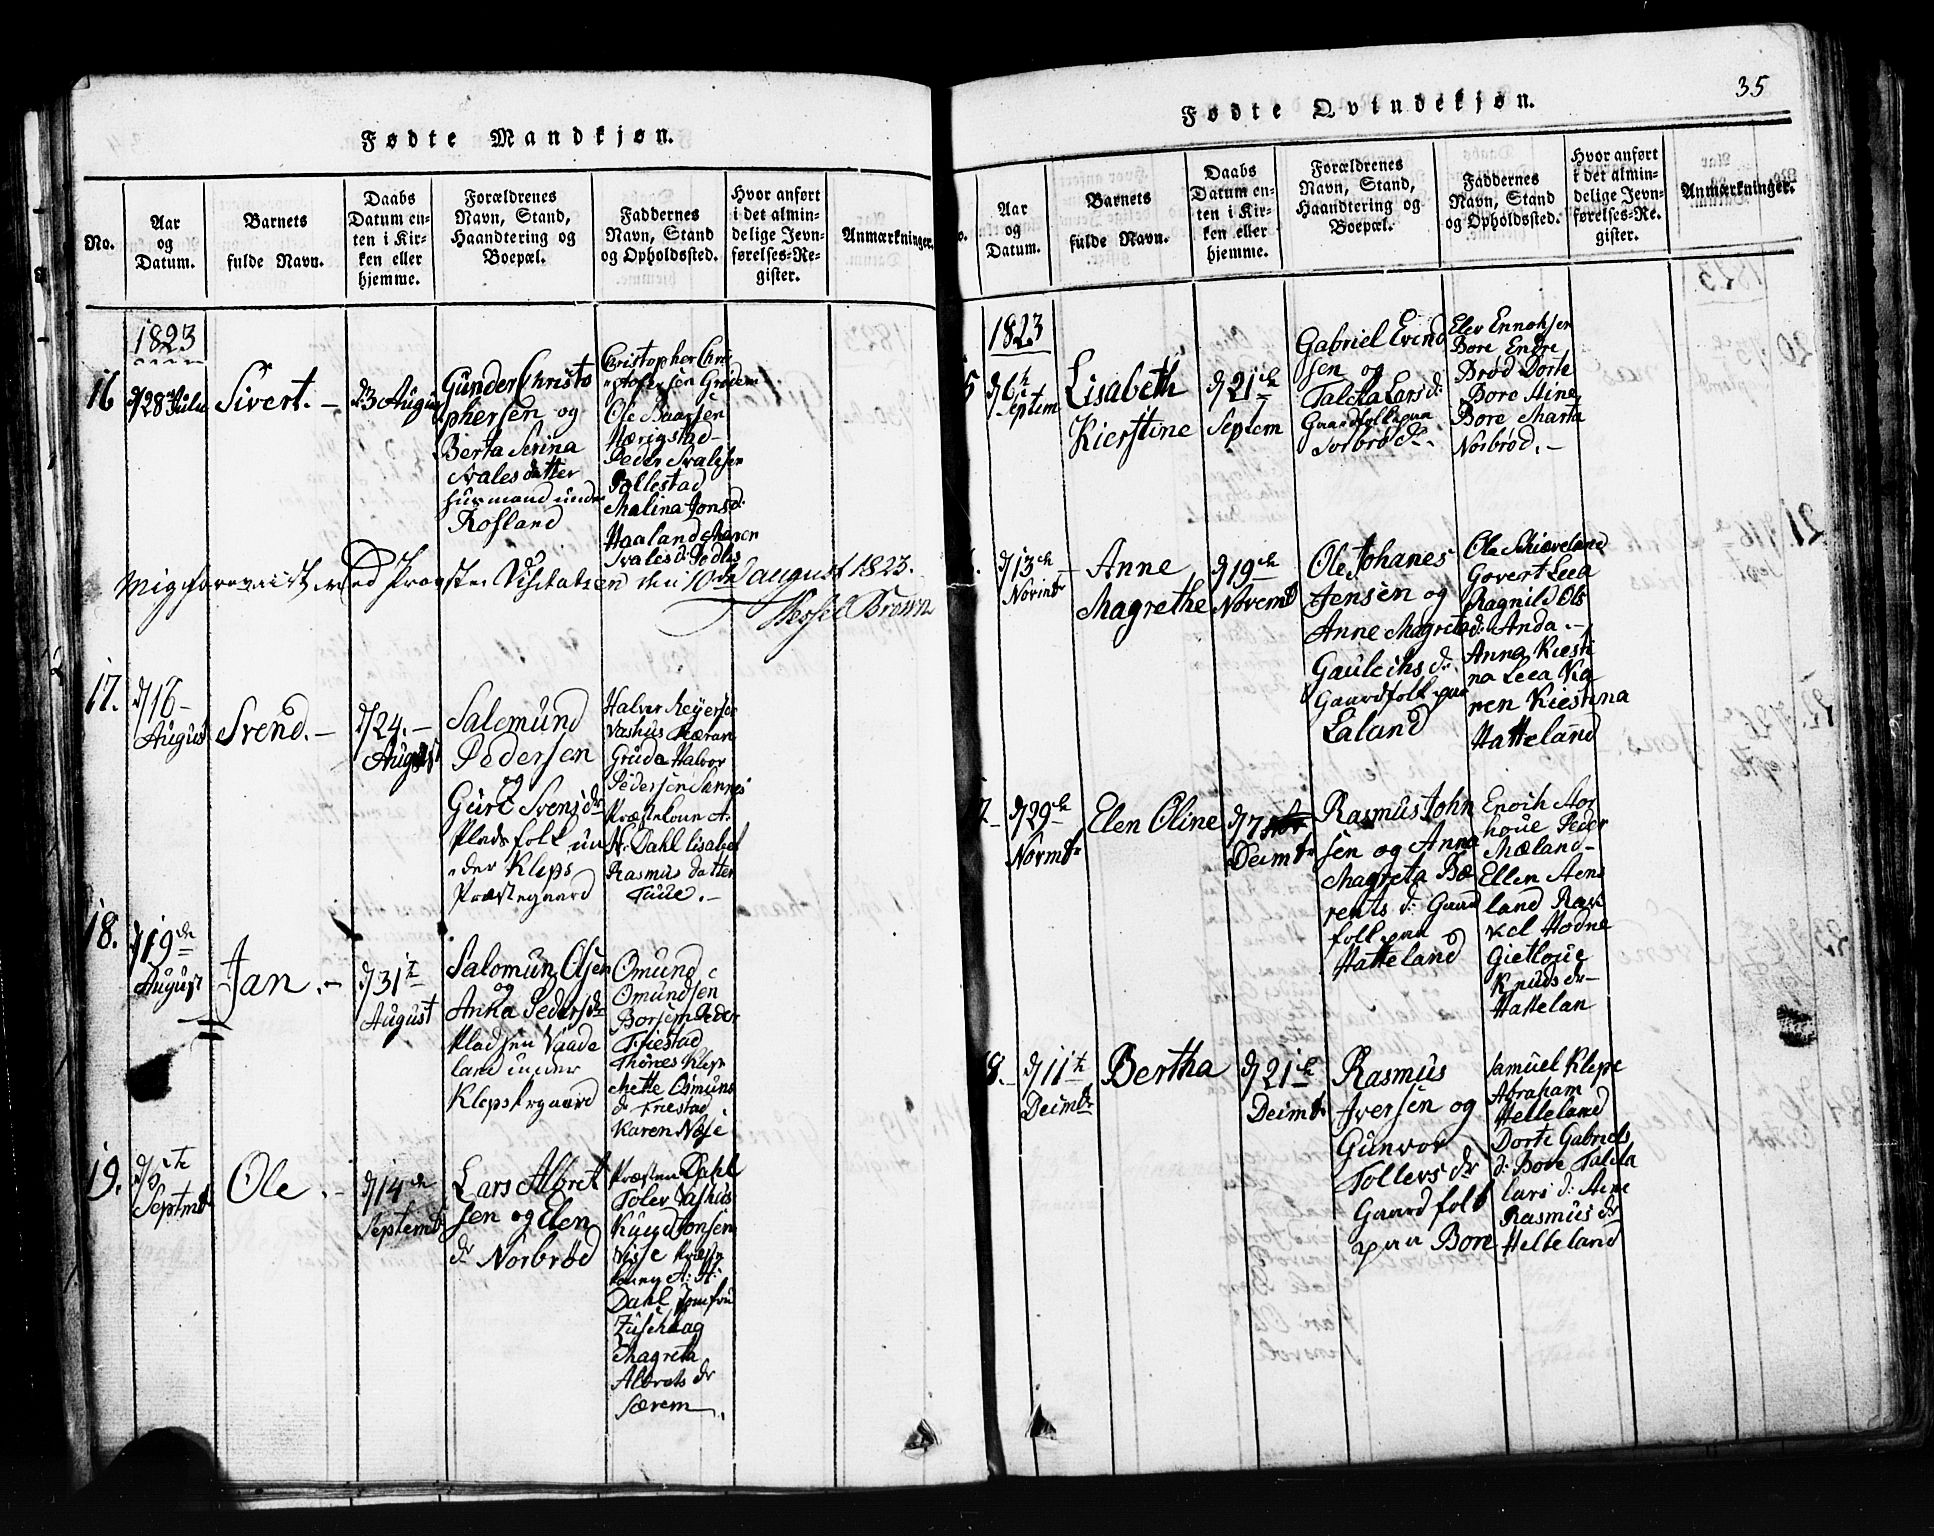 Fødte Mandkjøn.
No.
Aar
og
Datum.
Barnets
fulde Navn.
Daabs
Datum en-
ten i Kir-
ken eller
hjemme.
Forældrenes
Navn, Stand,
Haandtering og
Boepæl.
Faddernes
Navn, Stand
og Opholdssted.
Hvor anført
i det almin-
delige Jevn-
førelses-Re-
gister.
Anmærkninger.
1823
16
d/28 Julii
Sivert. –
23 August
Gunder Christo
phersen og
Berta Serina
Svales datter
huusmand under
Rosland
Christopher Chri
stofersen Grødem
Ole Baarsen
Hærigstad
Peder Svalesen
Pollestad
Malina Jonsd:
Haaland Maren
Svales d:
Mig forevist ved Provste Visitatsen den 10de August 1823.
Brown
17.
d/16 –
August
Svend. –
d/24. –
August
Salomund
Pedersen
og
Guri Svensdr
Pladsfolk un
der Kleps
Præstegaard
Halvor Reiersen
Vashus
Gruda Halvor
Pedersen Sannes
Præstekone A.
H. Dahl Lisabet
Rasmus datter
Tuue. –
18.
d/19de
August
Jan. –
d/31te
August
Salomun Olsen
og
Anna Pedersdr
Pladsen Vaade
land under
Kleps Prgaard
Omund
Omundsen
Borsem Peder
Friestad
Thores Klep
Mette Osmuns
dr Friestad
Karen Næse
19.
d/6te
Septembr
Ole. –
d/14de
Septembr
Lars Albret
sen og Elen
dr Norbrød
Præsten Dahl
Tolev Vashus
Knud Jonsen
Visse Præste
konen A: H:
Dahl Jomfru
Magreta
Albrets dr
Særem.
35
Fødte Qvindekjøn.
o.
Aar
og
Datum.
Barnets
fulde Navn.
Daabs
Datum en-
ten i Kir-
ken eller
hjemme.
Forældrenes
Navn, Stand,
Haandtering og
Boepæl.
Faddernes
Navn, Stand
og Opholdssted.
Hvor anført
i det almin-
delige Jevn-
førelses-Re-
gister.
Anmærkninger.
1823
5
d/6te
Septem
Lisabeth
Kierstine
d/21de
Septem
Gabriel Evind
sen og
Taleta Lars d:
Gaardfolk paa
Sorbrød.
Elev Ennoksen
Bore Endre
Brød Dorte
Bore Aine
Bore Marta
Norbrød. –
d/13de
Novmbr
Anne
Magrethe
d/19de
Novembr
Ole Johanes
Jensen og
Anne Magreta
Gauleihs dr
Gaardfolk paa
Laland
Ole Skiæveland
Govert Leea
Ragnild Ols
d: Anda. –
Anna Kiesti
na Leea Ka
ren Kiestina
Hatteland
7. –
d/29de
Novmbr
Elen Oline
d/7
Decmbr
Rasmus John
sen og Anna
Magreta Bæ
rents d: Gaard
folk paa
Hatteland
Enoch Aor
houe Peder
Mæland –
Ellen Aens
land Ras
kel Hodne
Gietloue
Knuds dr –
Hattelan
8. –
d/11te
Decmbr
Bertha
d/21de
Decmbr
Rasmus
Iversen og
Gunvor
Tollevs dr
Gaardfolk
paa Bore
Samuel Klepe
Abraham
Helleland
Dorte Gabriels
d: Bore Taleta
Lars d: Aene
Rasmus dr
Helleland